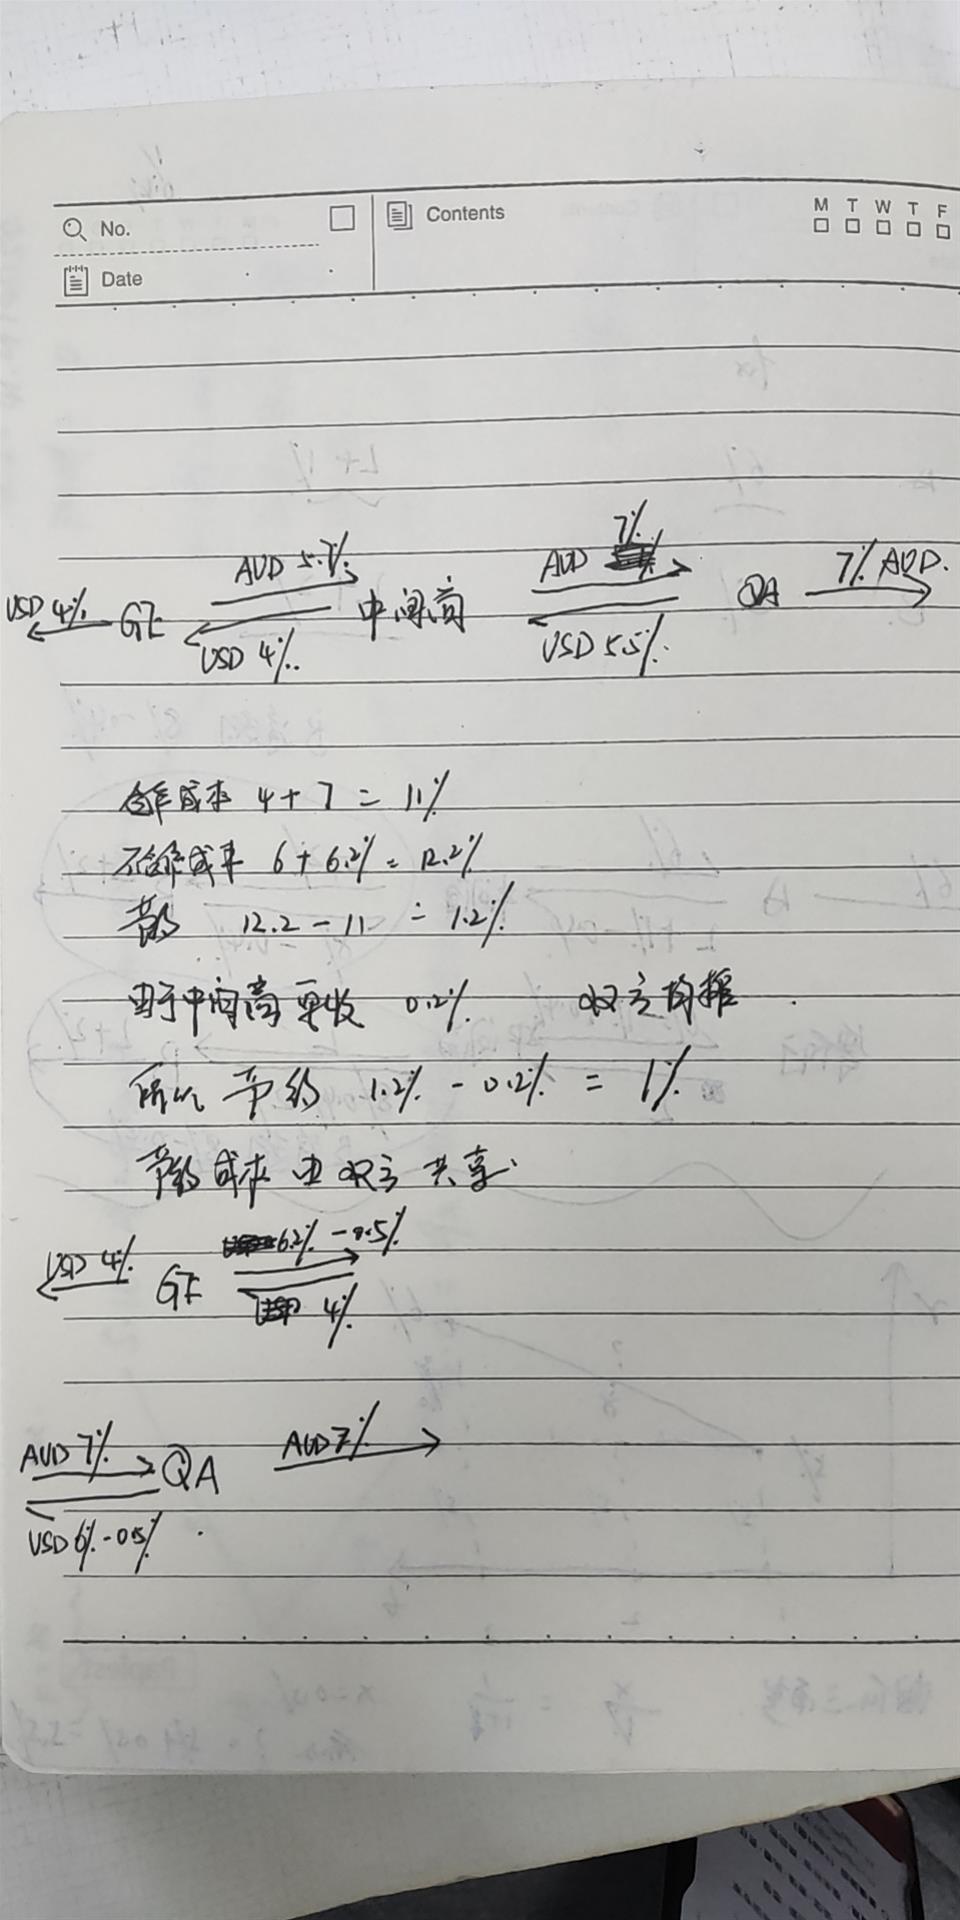 No.
Contents
M T W T F
Date
7%
AUD 5.7% AUD 7% AUD.
USD 4% GE 中间商 QA
USD 4% USD 5.5%
合作成本 4+7=11%
不合作成本 6+6.2%=12.2%
节约 12.2-11=1.2%
由于中间商要收 0.2% 双方均摊
所以 节约 1.2%-0.2%=1%
节约成本由双方共享
6.2%-0.5%
USD 4% GE
4%
AUD 7% QA AUD 7%
USD 6%-0.5%